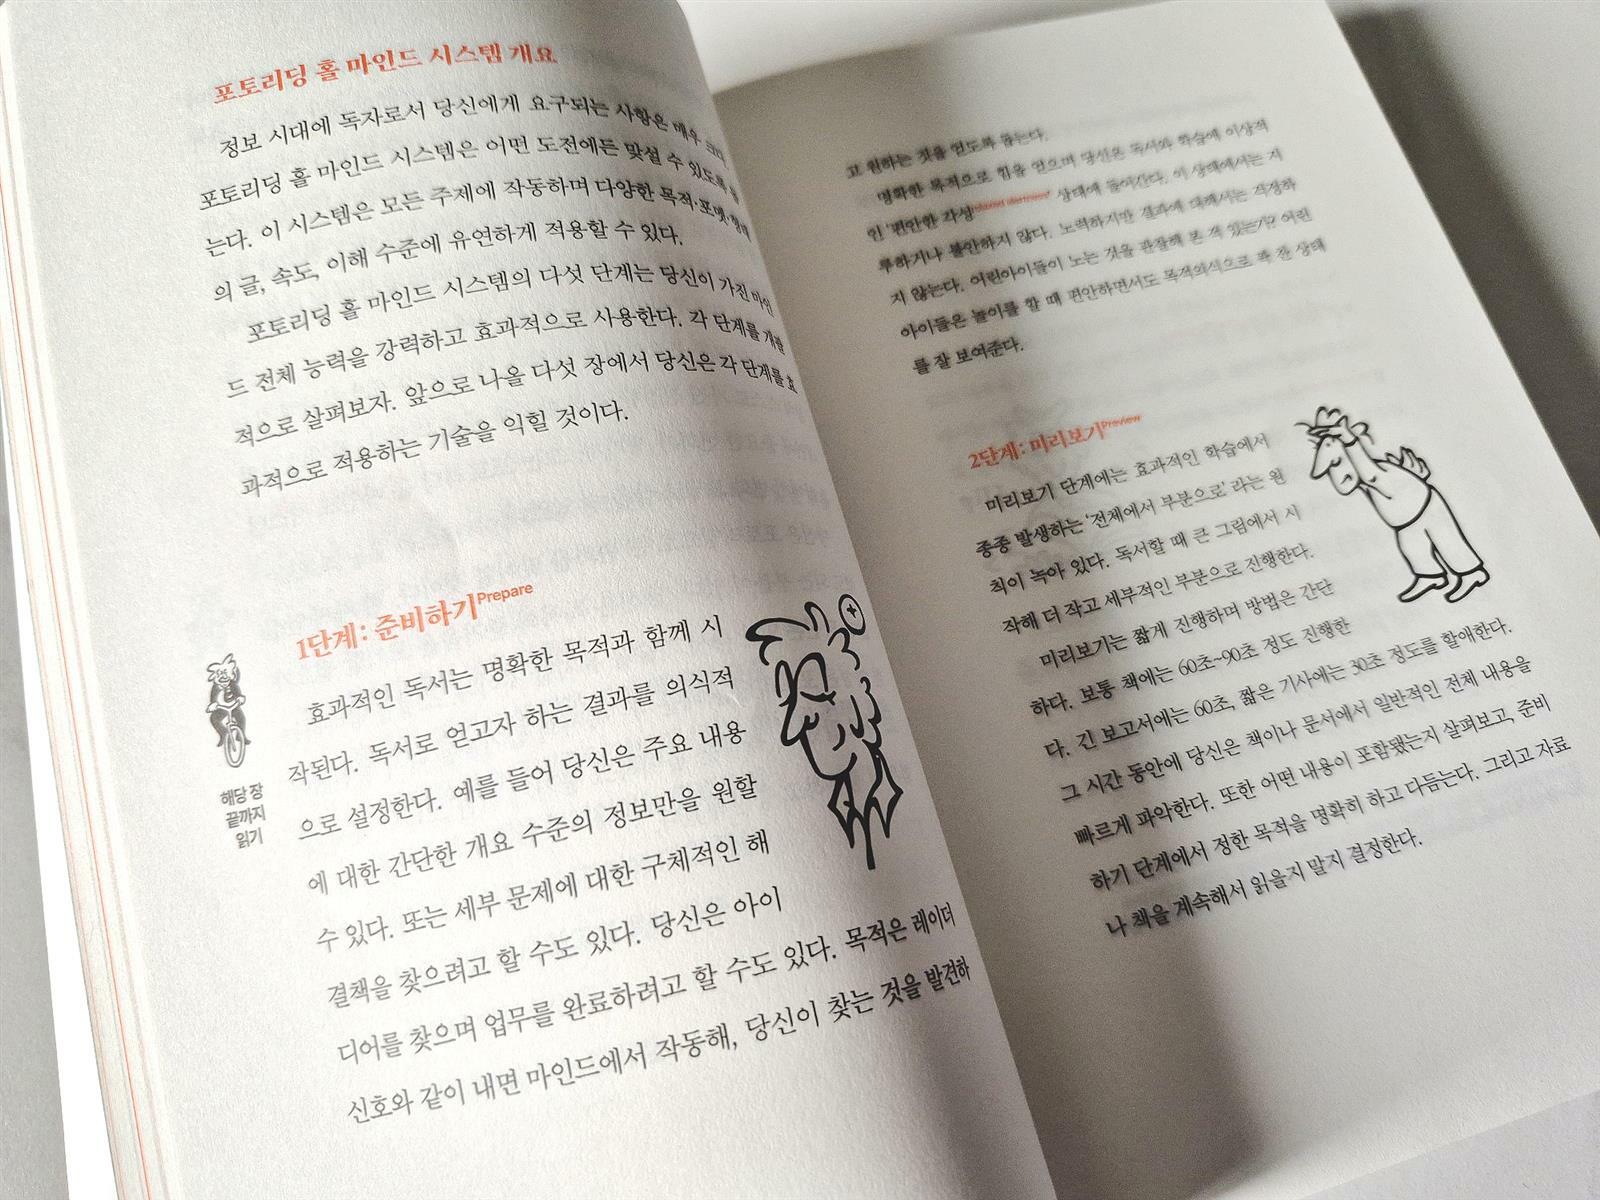 포토리딩 홀 마인드 시스템 개요
정보 시대에 독자로서 당신에게 요구되는 사항은 매우 크다.
포토리딩 홀 마인드 시스템은 어떤 도전에든 맞설 수 있도록
는다. 이 시스템은 모든 주제에 작동하며 다양한 목적·포맷·형태
의 글, 속도, 이해 수준에 유연하게 적용할 수 있다.
포토리딩 홀 마인드 시스템의 다섯 단계는 당신이 가진 마인
드 전체 능력을 강력하고 효과적으로 사용한다. 각 단계를 개괄
적으로 살펴보자. 앞으로 나올 다섯 장에서 당신은 각 단계를 효
과적으로 적용하는 기술을 익힐 것이다.
1단계: 준비하기Prepare
효과적인 독서는 명확한 목적과 함께 시
작된다. 독서로 얻고자 하는 결과를 의식적
으로 설정한다. 예를 들어 당신은 주요 내용
에 대한 간단한 개요 수준의 정보만을 원할
수 있다. 또는 세부 문제에 대한 구체적인 해
결책을 찾으려고 할 수도 있다. 당신은 아이
디어를 찾으며 업무를 완료하려고 할 수도 있다. 목적은 레이더
신호와 같이 내면 마인드에서 작동해, 당신이 찾는 것을 발견하
해당 장
끝까지
읽기
고 원하는 것을 얻도록 돕는다.
명확한 목적으로 힘을 얻으며 당신은 독서와 학습에 이상적
인 '편안한 각성' 상태에 들어간다. 이 상태에서는 지
루하거나 불안하지 않다. 노력하지만 결과에 대해서는 걱정하
지 않는다. 어린아이들이 노는 것을 관찰해 본 적 있는가? 어린
아이들은 놀이를 할 때 편안하면서도 목적의식으로 꽉 찬 상태
를 잘 보여준다.
2단계: 미리보기Preview
미리보기 단계에는 효과적인 학습에서
종종 발생하는 '전체에서 부분으로'라는 원
칙이 녹아 있다. 독서할 때 큰 그림에서 시
작해 더 작고 세부적인 부분으로 진행한다.
미리보기는 짧게 진행하며 방법은 간단
하다. 보통 책에는 60초~90초 정도 진행한
다. 긴 보고서에는 60초, 짧은 기사에는 30초 정도를 할애한다.
그 시간 동안에 당신은 책이나 문서에서 일반적인 전체 내용을
빠르게 파악한다. 또한 어떤 내용이 포함됐는지 살펴보고, 준비
하기 단계에서 정한 목적을 명확히 하고 다듬는다. 그리고 자료
나 책을 계속해서 읽을지 말지 결정한다.